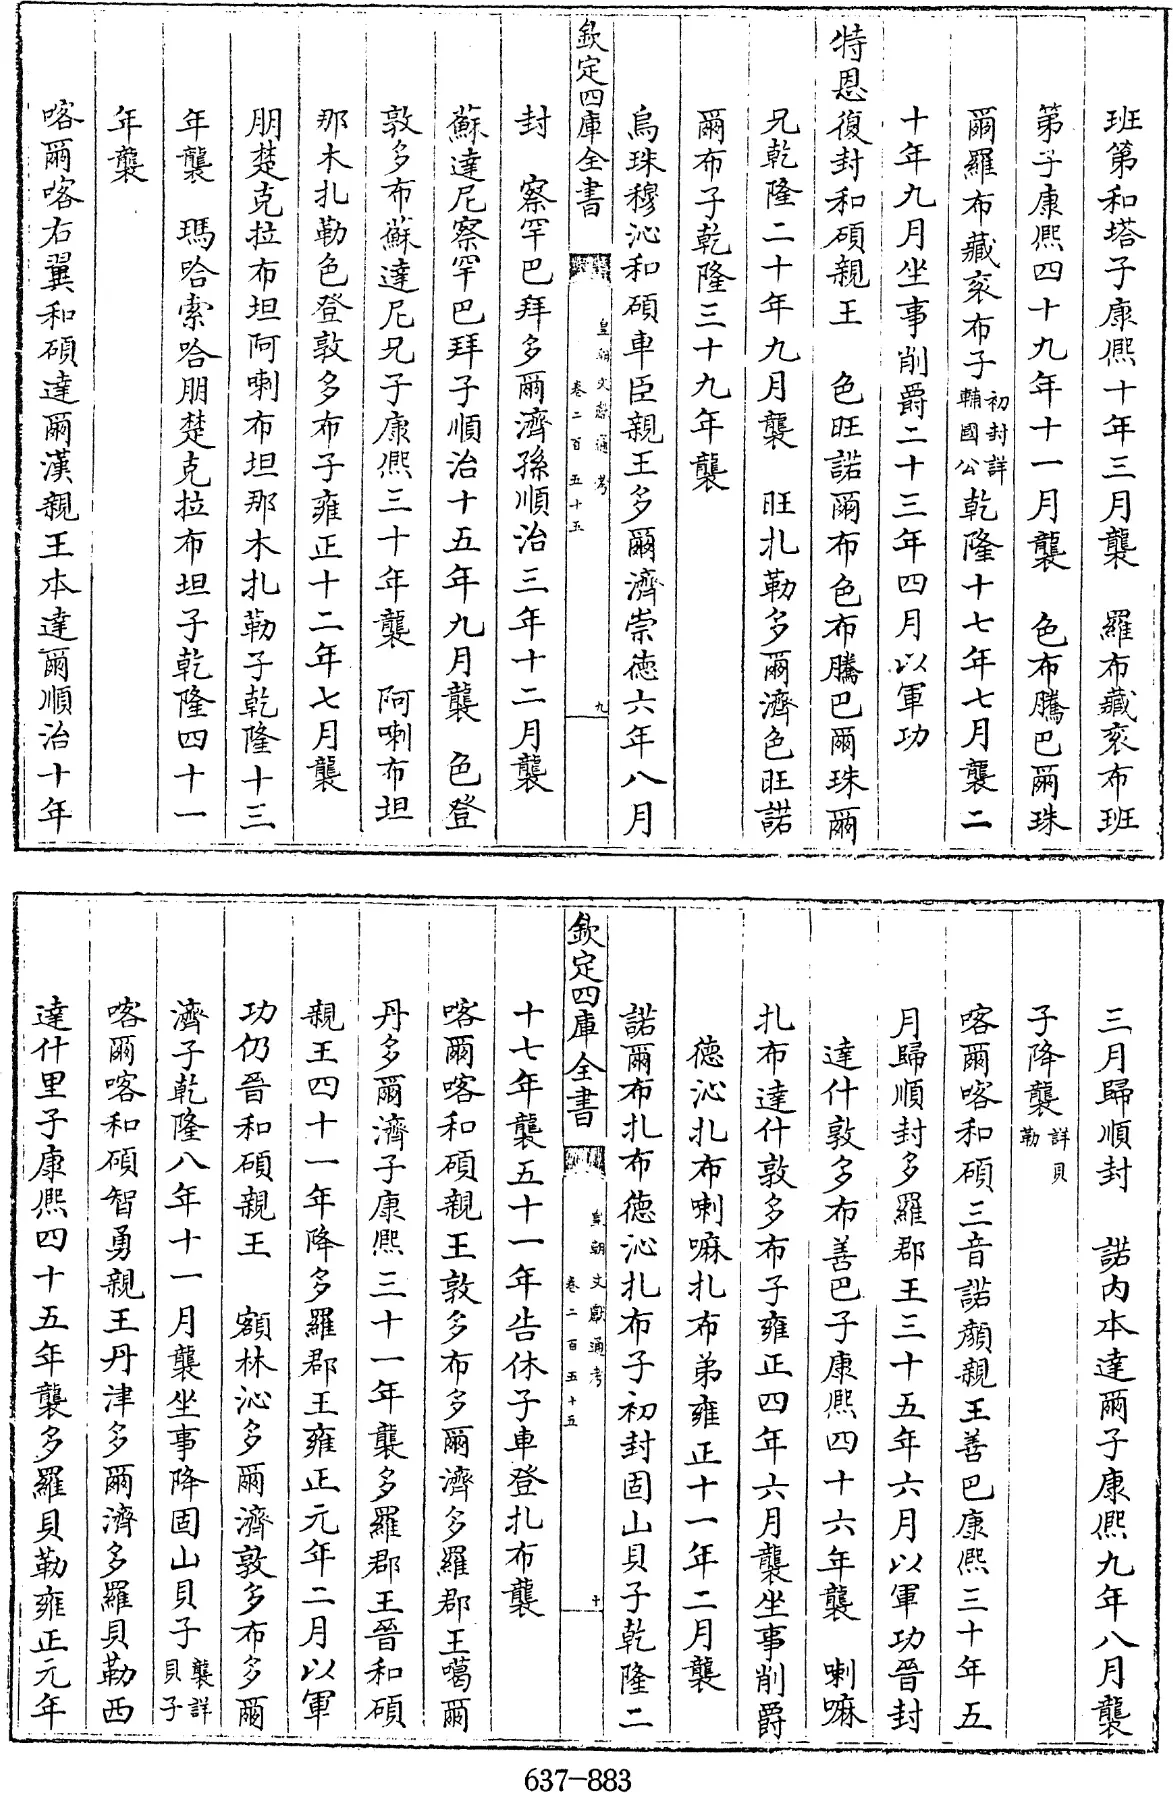 班第和塔子康熙十年三月襲　羅布藏衮布班
第子康熙四十九年十一月襲　色布騰巴爾珠
爾羅布藏衮布子初封詳輔國公乾隆十七年七月襲二
十年九月坐事削爵二十三年四月以軍功
特恩復封和碩親王　色旺諾爾布色布騰巴爾珠爾
兄乾隆二十年九月襲　旺扎勒多爾濟色旺諾
爾布子乾隆三十九年襲
烏珠穆沁和碩車臣親王多爾濟崇德六年八月
欽定四庫全書
皇朝文獻通考
卷二百五十五
九
封　察罕巴拜多爾濟孫順治三年十二月襲
蘇達尼察罕巴拜子順治十五年九月襲　色登
敦多布蘇達尼兄子康熙三十年襲　阿喇布坦
那木扎勒色登敦多布子雍正十二年七月襲
朋楚克拉布坦阿喇布坦那木扎勒子乾隆十三
年襲　瑪哈索哈朋楚克拉布坦子乾隆四十一
年襲
喀爾喀右翼和碩達爾漢親王本達爾順治十年
三月歸順封　諾內本達爾子康熙九年八月襲
子降襲詳貝勒
喀爾喀和碩三音諾顏親王善巴康熙三十年五
月歸順封多羅郡王三十五年六月以軍功晉封
達什敦多布善巴子康熙四十六年襲　喇嘛
扎布達什敦多布子雍正四年六月襲坐事削爵
德沁扎布喇嘛扎布弟雍正十一年二月襲
諾爾布扎布德沁扎布子初封固山貝子乾隆二
欽定四庫全書
皇朝文獻通考
卷二百五十五
十
十七年襲五十一年告休子車登扎布襲
喀爾喀和碩親王敦多布多爾濟多羅郡王噶爾
丹多爾濟子康熙三十一年襲多羅郡王晉和碩
親王四十一年降多羅郡王雍正元年二月以軍
功仍晉和碩親王　額林沁多爾濟敦多布多爾
濟子乾隆八年十一月襲坐事降固山貝子襲詳貝子
喀爾喀和碩智勇親王丹津多爾濟多羅貝勒西
達什里子康熙四十五年襲多羅貝勒雍正元年
637-883